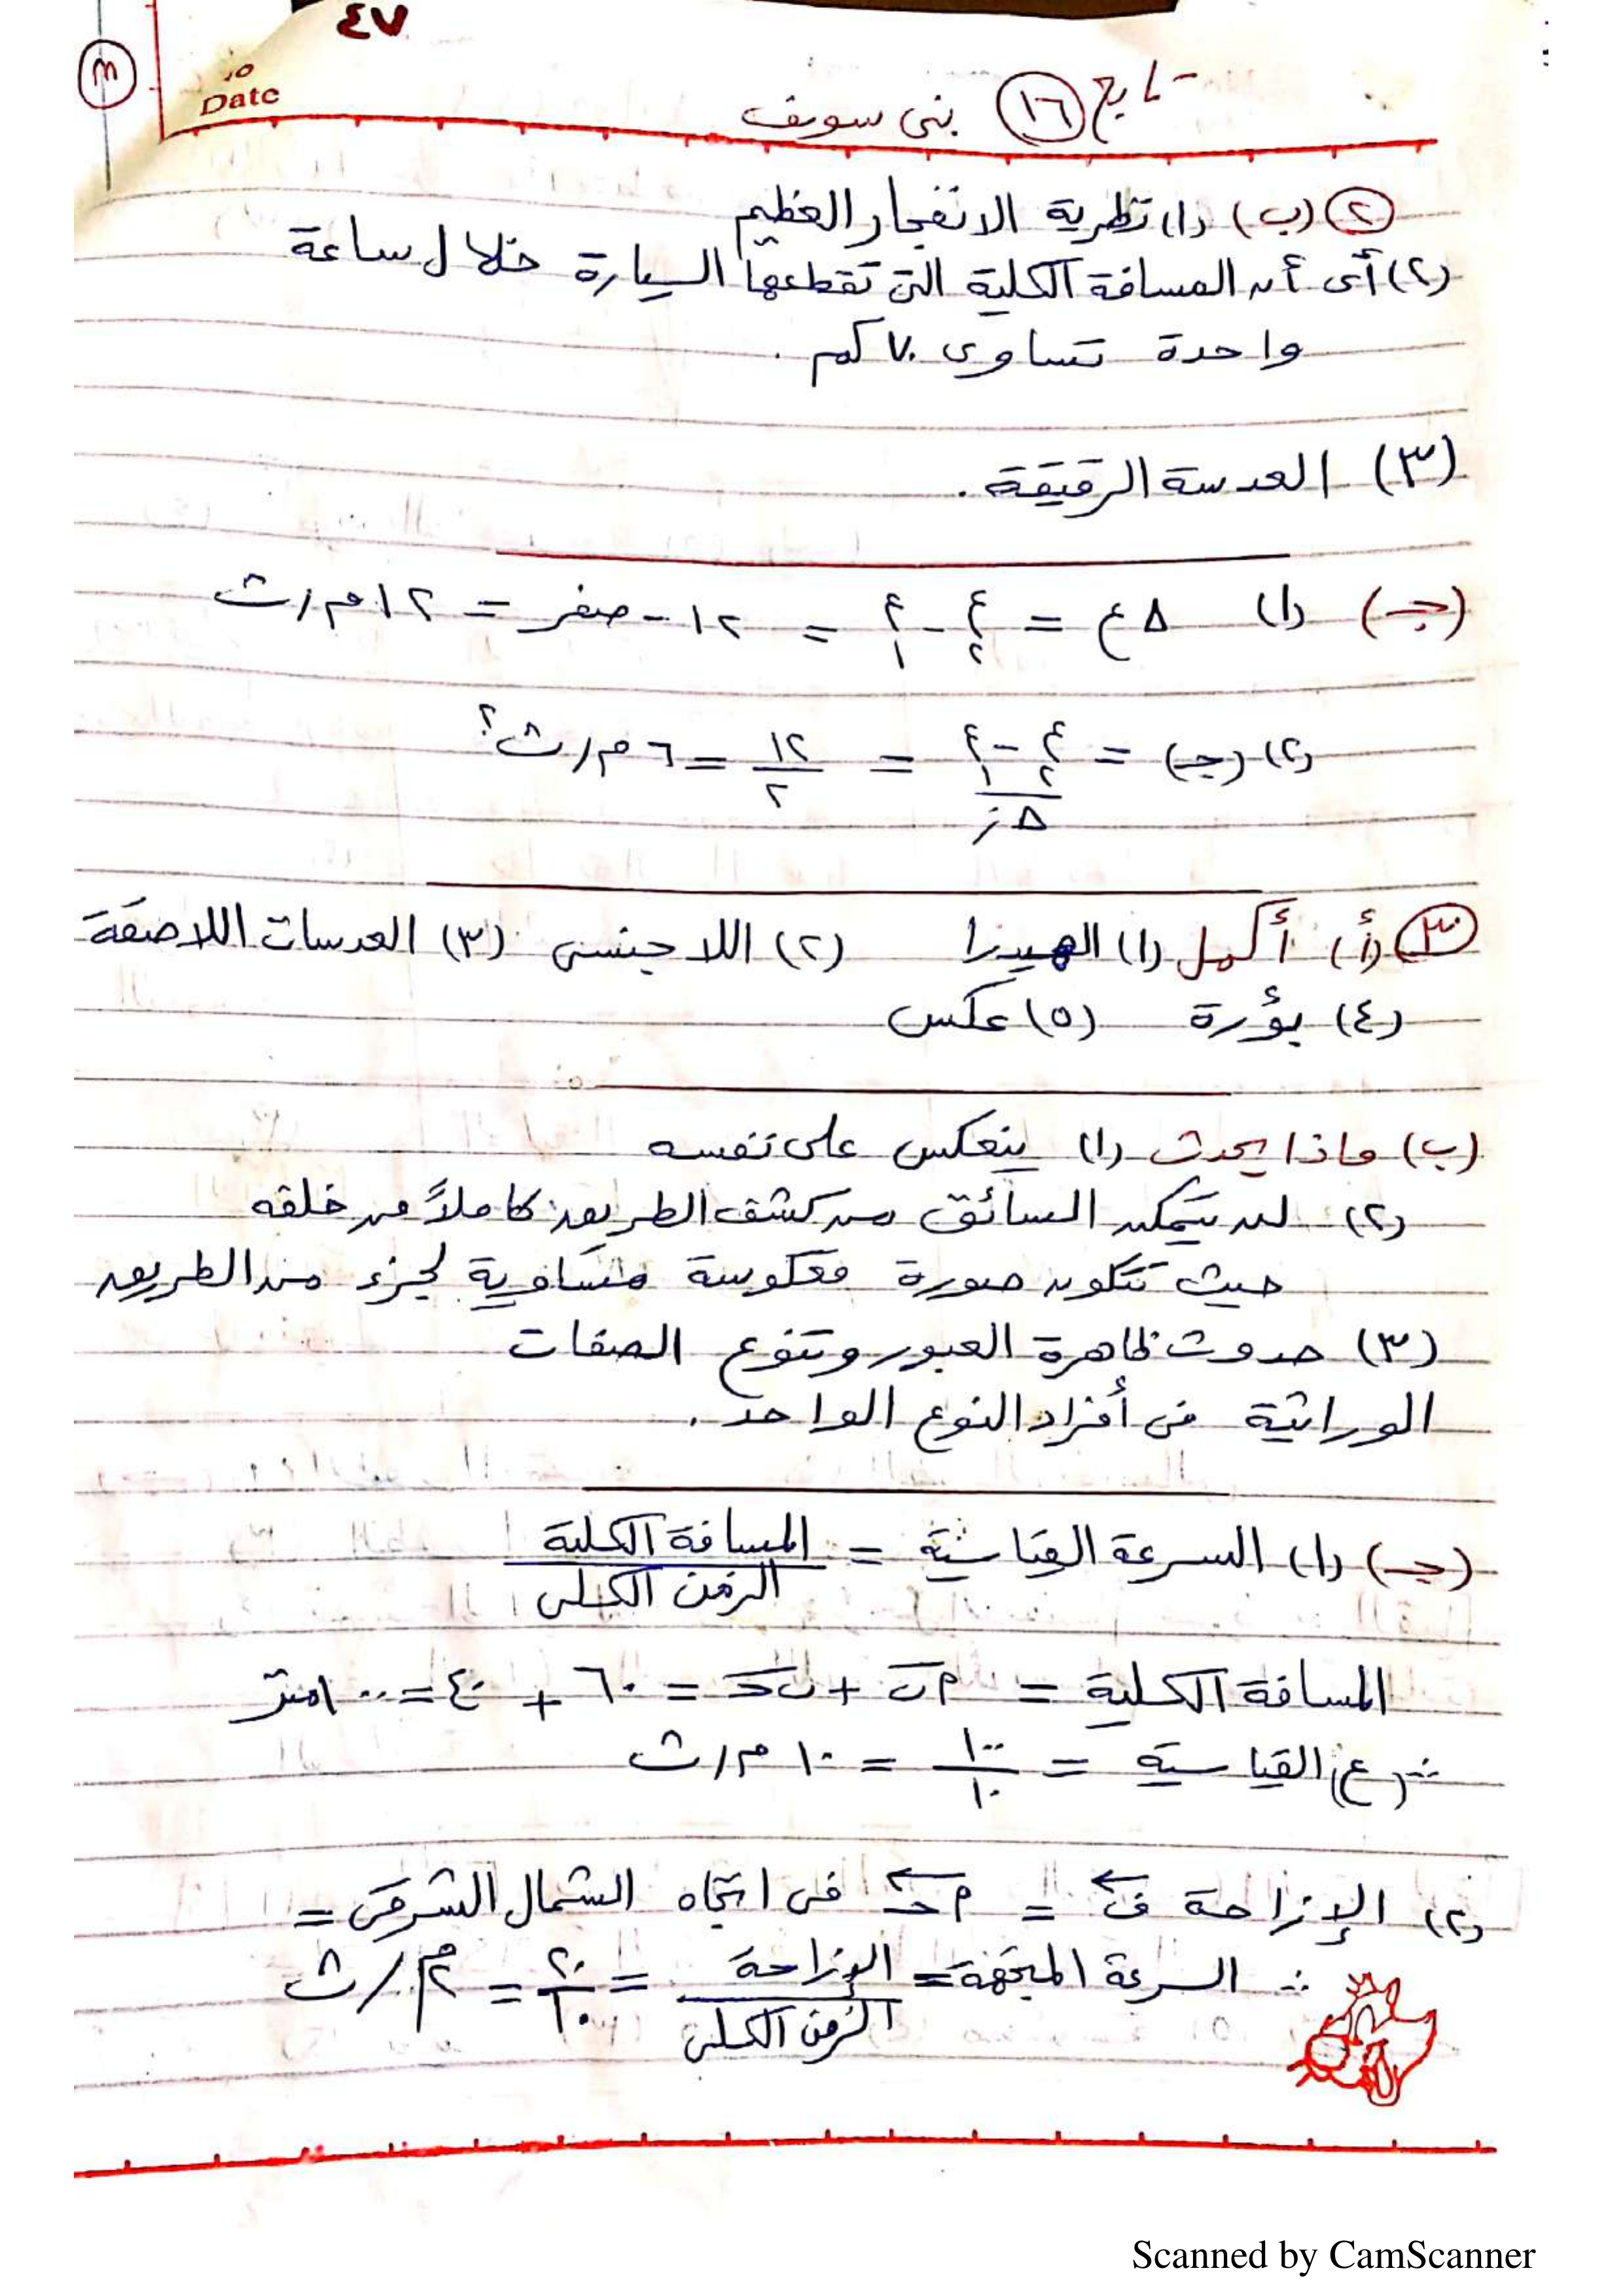 ٤٧
٣
No
Date
تابع ١٦ بنى سويف
٢ (ب) (١) نظرية الانفجار العظيم
(٢) أى أن المسافة الكلية التى تقطعها السيارة خلال ساعة
واحدة تساوى ٧٠ كم .
(٣) العدسة الرقيقة .
(جـ) (١) Δع = ع٢ - ع١ = ١٢ - صفر = ١٢ م/ث
(٢) (جـ) = (ع٢ - ع١) / Δز = ١٢ / ٢ = ٦ م/ث٢
٣ (أ) أكمل (١) الهيدرا (٢) اللاجنسى (٣) العدسات اللاصقة
(٤) بؤرة (٥) عكس
(ب) ماذا يحدث (١) ينعكس على نفسه
(٢) لن يتمكن السائق من كشف الطريق كاملاً من خلفه
حيث تتكون صورة معكوسة متساوية لجزء من الطريق
(٣) حدوث ظاهرة العبور وتنوع الصفات
الوراثية فى أفراد النوع الواحد .
(جـ) (١) السرعة القياسية = المسافة الكلية / الزمن الكلى
المسافة الكلية = م ب + ب حـ = ٦٠ + ٤٠ = ١٠٠ متر
∴ (ع) القياسية = ١٠٠ / ١٠ = ١٠ م/ث
(٢) الإزاحة ف = م حـ فى اتجاه الشمال الشرقى =
∴ السرعة المتجهة = الإزاحة / الزمن الكلى = ٢٠ / ١٠ = ٢ م/ث
Scanned by CamScanner